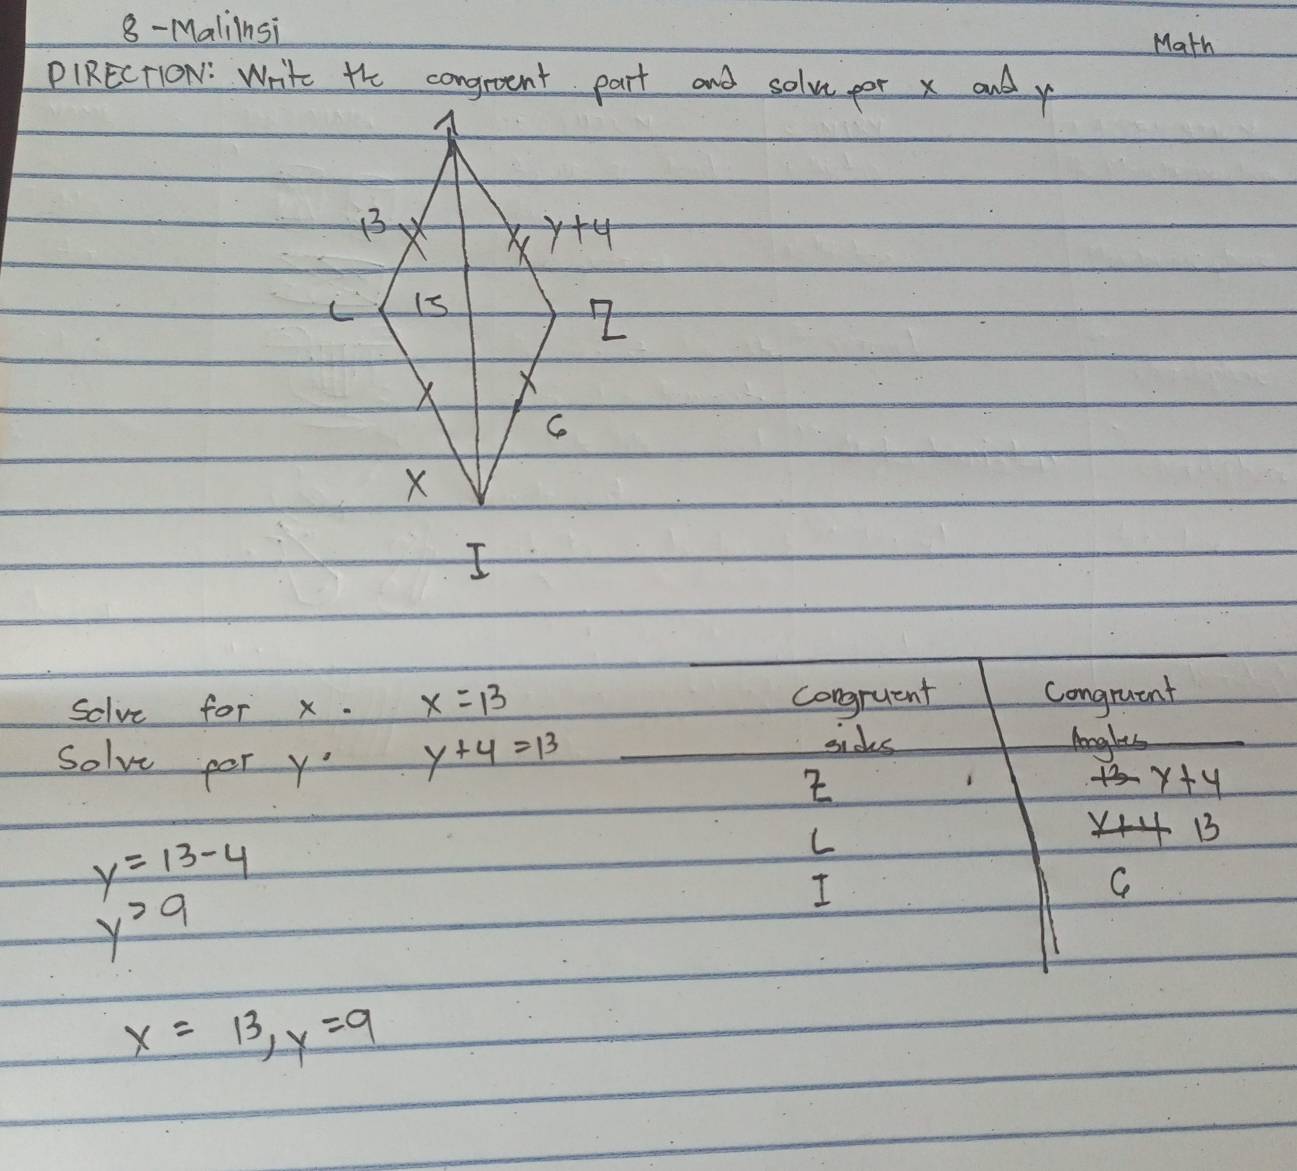 8-Malilhsi
Math
DIRECTION: Write the congruent part and solve for x and y
1
13
y+4
L
15
Z
6
X
I
Solve for x. x=13
Solve for y. y+4=13
y=13-4
y=9
x = 13, y=9
Congruent
sides
Congruent
Angles
Z
13 y+4
L
y+4 13
I
6